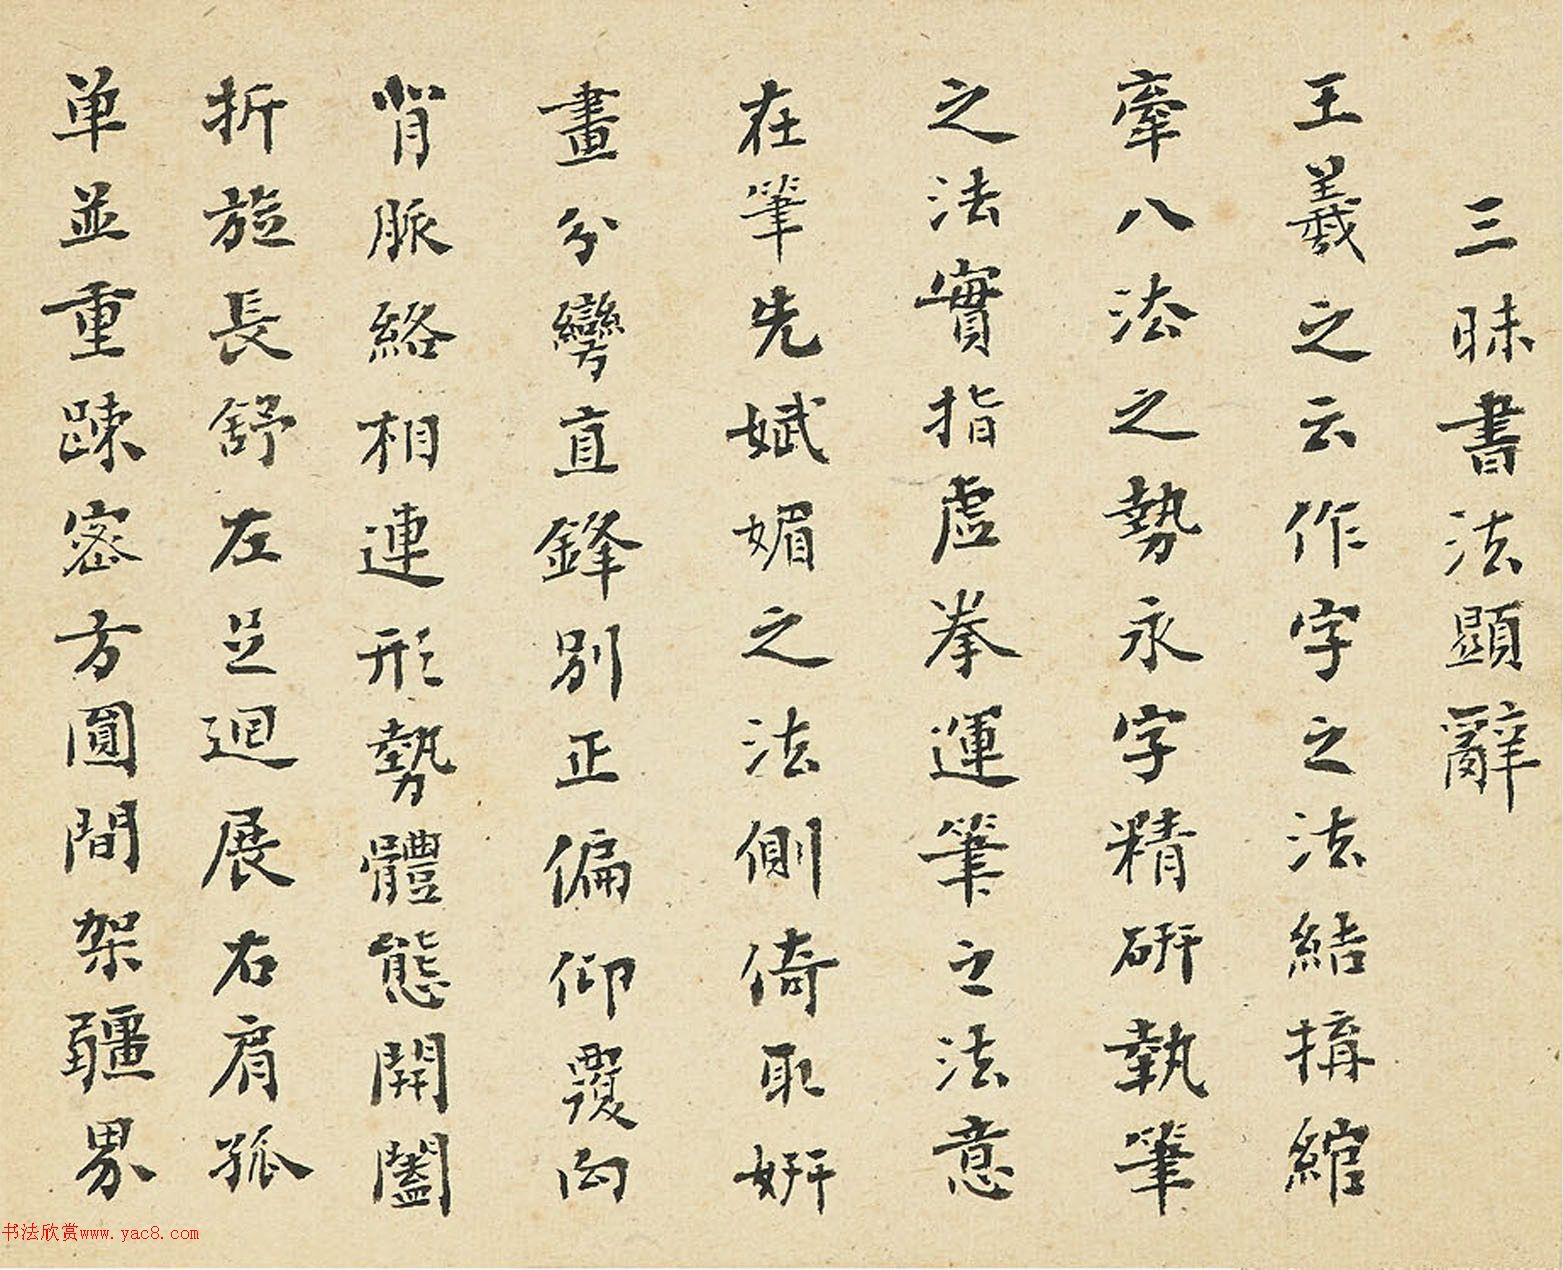 三昧書法顯辭
王羲之云作字之法結搆綰
牽八法之勢永字精研執筆
之法實指虛拳運筆之法意
在筆先斌媚之法側倚取妍
畫分彎直鋒別正偏仰覆向
背脈絡相連形勢體態開闔
折旋長舒左足迴展右肩孤
单並重踈密方圓間架疆界
书法欣赏www.yac8.com